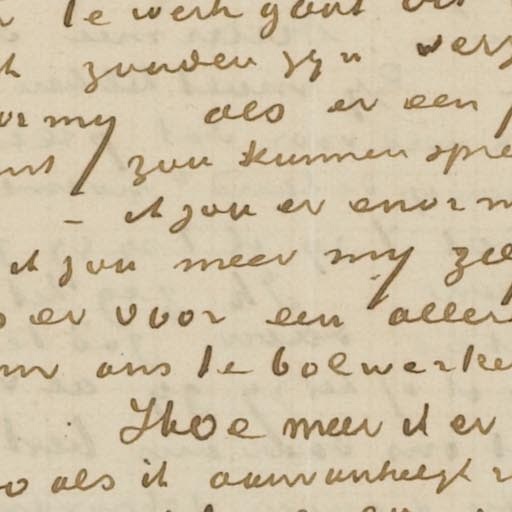 te werk gaat
zouden zyn
my als er een
zou kunnen spre
- ik zou er enorm
ik zou meer my
er voor een aller
om ons te bolwerke
Ihoe meer ik er
als ik